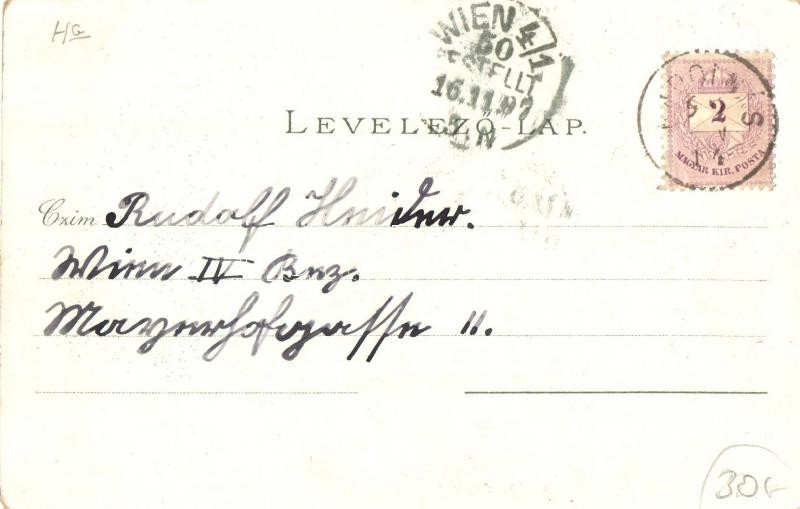 HG
WIEN 4/1
50
BESTELLT
16.11.97
LEVELEZŐ-LAP.
2
MAGYAR KIR. POSTA
Czim Rudolf Heider.
Wien IV Bez.
Mayerhofgasse 11.
30,-